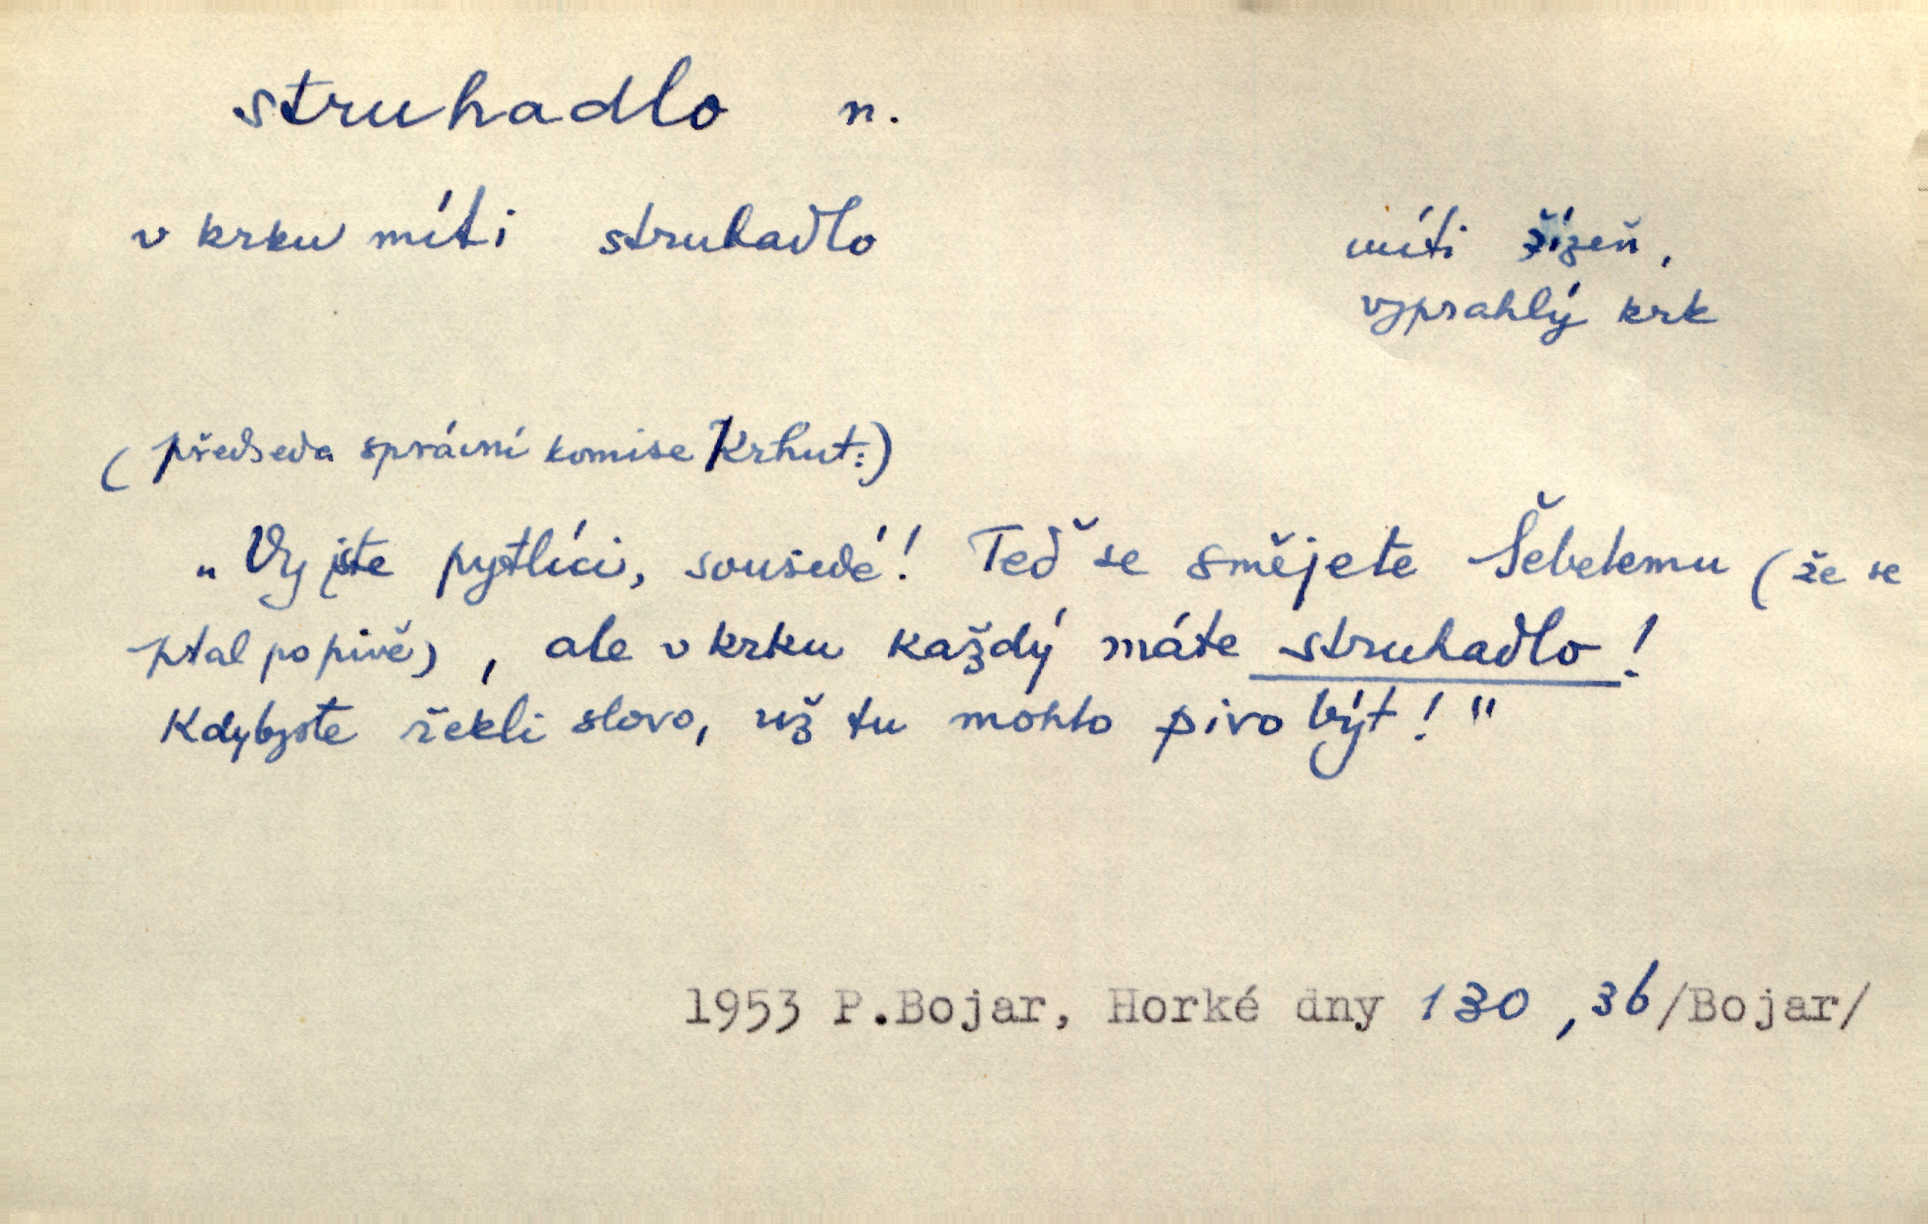 struhadlo n.
v krku míti struhadlo
míti žízeň,
vyprahlý krk
(předseda správní komise Krhut:)
„Vy jste pytlíci, sousedé! Teď se smějete Šebelemu (že se
ptal po pivě), ale v krku každý máte struhadlo!
Kdybyste řekli slovo, už tu mohlo pivo být!"
1953 P.Bojar, Horké dny 130, 36/Bojar/